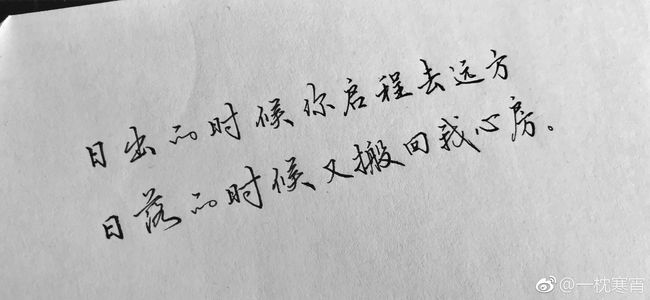 日出的时候你启程去远方
日落的时候又搬回我心房。
@一枕寒宵